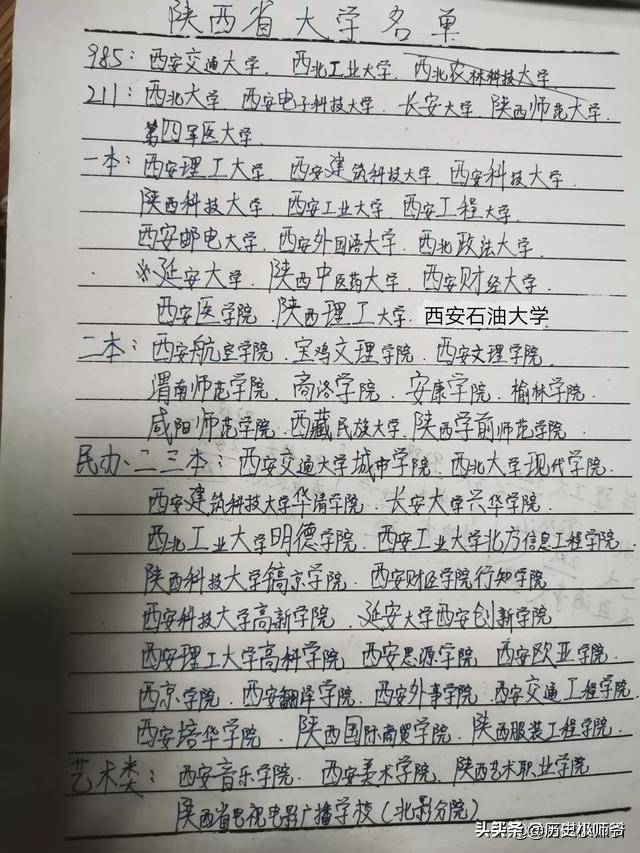 陕西省大学名单
985：西安交通大学、西北工业大学、西北农林科技大学
211：西北大学、西安电子科技大学、长安大学、陕西师范大学、
第四军医大学、
一本：西安理工大学、西安建筑科技大学、西安科技大学、
陕西科技大学、西安工业大学、西安工程大学、
西安邮电大学、西安外国语大学、西北政法大学、
※延安大学、陕西中医药大学、西安财经大学、
西安医学院、陕西理工大学、西安石油大学
二本：西安航空学院、宝鸡文理学院、西安文理学院、
渭南师范学院、商洛学院、安康学院、榆林学院、
咸阳师范学院、西藏民族大学、陕西学前师范学院、
民办、二三本：西安交通大学城市学院、西北大学现代学院、
西安建筑科技大学华清学院、长安大学兴华学院、
西北工业大学明德学院、西安工业大学北方信息工程学院、
陕西科技大学镐京学院、西安财经学院行知学院
西安科技大学高新学院、延安大学西安创新学院
西安理工大学高科学院 西安思源学院 西安欧亚学院、
西京学院、西安翻译学院、西安外事学院、西安交通工程学院、
西安培华学院、陕西国际商贸学院、陕西服装工程学院、
艺术类：西安音乐学院、西安美术学院、陕西艺术职业学院
陕西省电视电影广播学校（北影分院）
头条@历史极师爷